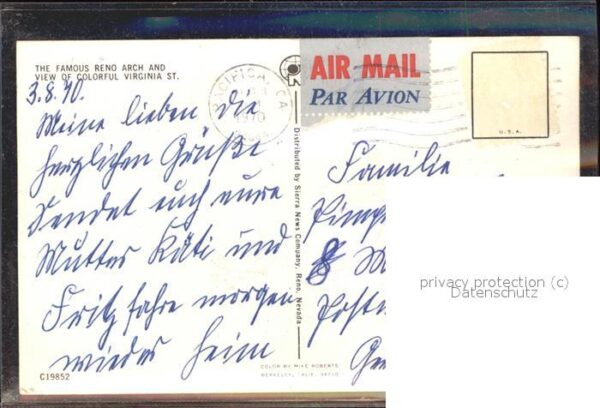 THE FAMOUS RENO ARCH AND
VIEW OF COLORFUL VIRGINIA ST.
3.8.70.
Meine lieben die
herzlichen Grüße
sendet euch eure
Mutter Käti und
Fritz fahre morgen
wieder heim
C19852
PACIFICA, CA
1970
AIR MAIL
PAR AVION
U.S.A.
Distributed by Sierra News Company, Reno, Nevada
COLOR BY MIKE ROBERTS
BERKELEY, CALIF. 94710
Familie
8 M
privacy protection (c)
Datenschutz